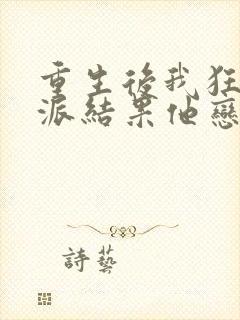 重生後我狂
派結果他戀
詩藝